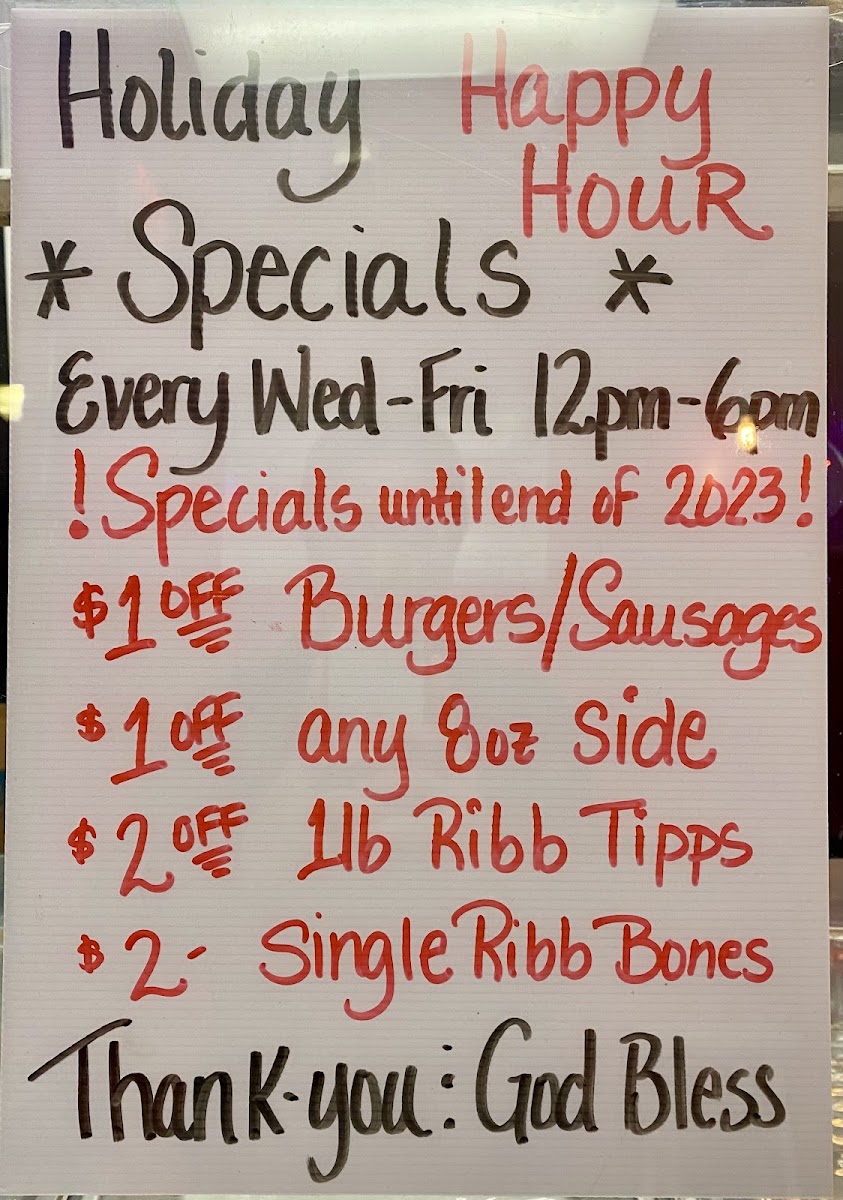 Holiday Happy
Hour
* Specials *
Every Wed-Fri 12pm-6pm
! Specials until end of 2023!
$1 OFF Burgers/Sausages
$1 OFF any 8oz Side
$2 OFF 1lb Ribb Tipps
$2- Single Ribb Bones
Thank-you : God Bless